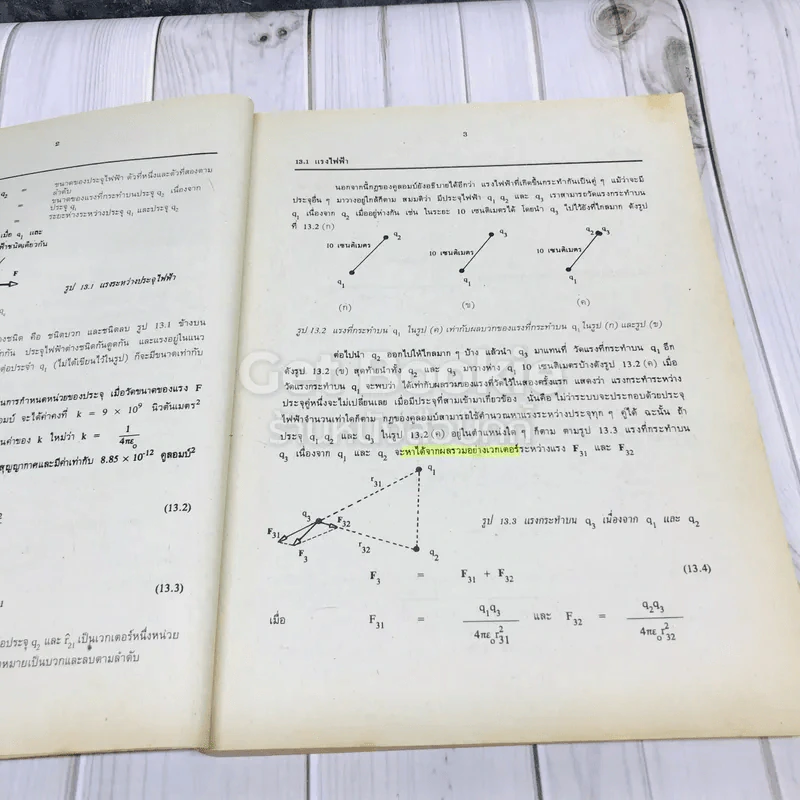 2
q₂ = ขนาดของประจุไฟฟ้า ตัวที่หนึ่งและตัวที่สองตาม
ลำดับ
= ขนาดของแรงที่กระทำบนประจุ q₂ เนื่องจาก
ประจุ q₁
= ระยะห่างระหว่างประจุ q₁ และประจุ q₂
เมื่อ q₁ และ
ฟ้าชนิดเดียวกัน
F
รูป 13.1 แรงระหว่างประจุไฟฟ้า
างชนิด คือ ชนิดบวก และชนิดลบ รูป 13.1 ข้างบน
กัน ประจุไฟฟ้าต่างชนิดกันดูดกัน และแรงอยู่ในแนว
ต่อประจำ q₁ (ไม่ได้เขียนไว้ในรูป) ก็จะมีขนาดเท่ากับ
นการกำหนดหน่วยของประจุ เมื่อวัดขนาดของแรง F
อมบ์ จะได้ค่าคงที่ k = 9 × 10⁹ นิวตันเมตร²
นค่าของ k ใหม่ว่า k = 1/4πε₀
สุญญากาศและมีค่าเท่ากับ 8.85 × 10⁻¹² คูลอมบ์²
(13.2)
(13.3)
อประจุ q₂ และ r̂₂₁ เป็นเวกเตอร์หนึ่งหน่วย
หมายเป็นบวกและลบตามลำดับ
3
13.1 แรงไฟฟ้า
นอกจากนี้กฎของคูลอมบ์ยังอธิบายได้อีกว่า แรงไฟฟ้าที่เกิดขึ้นกระทำกันเป็นคู่ ๆ แม้ว่าจะมี
ประจุอื่น ๆ มาวางอยู่ใกล้ก็ตาม สมมติว่า มีประจุไฟฟ้า q₁ q₂ และ q₃ เราสามารถวัดแรงกระทำบน
q₁ เนื่องจาก q₂ เมื่ออยู่ห่างกัน เช่น ในระยะ 10 เซนติเมตรได้ โดยนำ q₃ ไปไว้ยังที่ไกลมาก ดังรูป
ที่ 13.2 (ก)
10 เซนติเมตร q₂ q₁
10 เซนติเมตร q₃ q₁
10 เซนติเมตร q₂ q₃ q₁
(ก) (ข) (ค)
รูป 13.2 แรงที่กระทำบน q₁ ในรูป (ค) เท่ากับผลบวกของแรงที่กระทำบน q₁ ในรูป (ก) และรูป (ข)
ต่อไปนำ q₂ ออกไปให้ไกลมาก ๆ บ้าง แล้วนำ q₃ มาแทนที่ วัดแรงที่กระทำบน q₁ อีก
ดังรูป 13.2 (ข) สุดท้ายนำทั้ง q₂ และ q₃ มาวางห่าง q₁ 10 เซนติเมตรบ้างดังรูป 13.2 (ค) เมื่อ
วัดแรงกระทำบน q₁ จะพบว่า ได้เท่ากับผลรวมของแรงที่วัดไว้ในสองครั้งแรก แสดงว่า แรงกระทำระหว่าง
ประจุคู่หนึ่งจะไม่เปลี่ยนเลย เมื่อมีประจุที่สามเข้ามาเกี่ยวข้อง นั่นคือ ไม่ว่าระบบจะประกอบด้วยประจุ
ไฟฟ้าจำนวนเท่าใดก็ตาม กฎของคูลอมบ์สามารถใช้คำนวณหาแรงระหว่างประจุทุก ๆ คู่ได้ ฉะนั้น ถ้า
ประจุ q₁ q₂ และ q₃ ในรูป 13.2 (ค) อยู่ในตำแหน่งใด ๆ ก็ตาม ตามรูป 13.3 แรงที่กระทำบน
q₃ เนื่องจาก q₁ และ q₂ จะหาได้จากผลรวมอย่างเวกเตอร์ระหว่างแรง F₃₁ และ F₃₂
r₃₁ q₁
q₃ F₃₂
F₃₁ F₃ r₃₂ q₂
รูป 13.3 แรงกระทำบน q₃ เนื่องจาก q₁ และ q₂
F₃ = F₃₁ + F₃₂ (13.4)
เมื่อ F₃₁ = q₁q₃/4πε₀r²₃₁ และ F₃₂ = q₂q₃/4πε₀r²₃₂